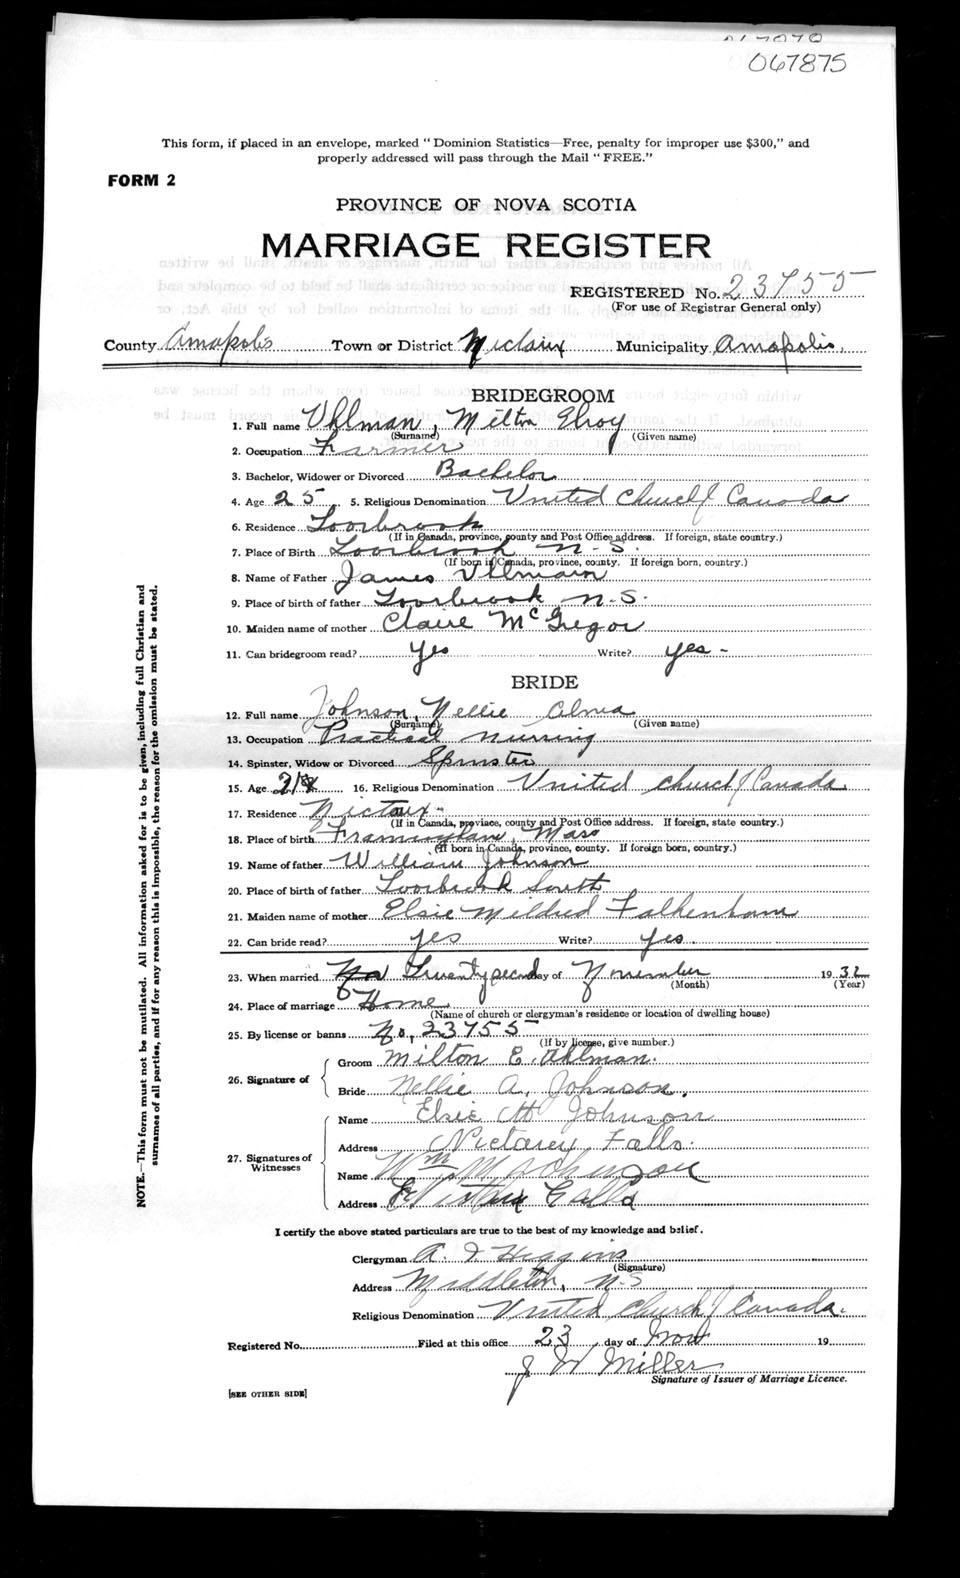 067875
This form, if placed in an envelope, marked "Dominion Statistics—Free, penalty for improper use $300," and
properly addressed will pass through the Mail "FREE."
FORM 2
PROVINCE OF NOVA SCOTIA
MARRIAGE REGISTER
REGISTERED No. 23755
(For use of Registrar General only)
County Annapolis Town or District Nictaux Municipality Annapolis.
BRIDEGROOM
1. Full name Uhlman, Milton Elroy
(Surname) (Given name)
2. Occupation Farmer
3. Bachelor, Widower or Divorced Bachelor
4. Age 25 5. Religious Denomination United Church of Canada
6. Residence Torbrook
(If in Canada, province, county and Post Office address. If foreign, state country.)
7. Place of Birth Torbrook N.S.
(If born in Canada, province, county. If foreign born, country.)
8. Name of Father James Uhlman
9. Place of birth of father Torbrook N.S.
10. Maiden name of mother Claire McGregor
11. Can bridegroom read? yes Write? yes -
BRIDE
12. Full name Johnson, Nellie Alma
(Surname) (Given name)
13. Occupation Practical nursing
14. Spinster, Widow or Divorced Spinster
15. Age 21 16. Religious Denomination United Church of Canada
17. Residence Nictaux
(If in Canada, province, county and Post Office address. If foreign, state country.)
18. Place of birth Framingham, Mass
(If born in Canada, province, county. If foreign born, country.)
19. Name of father William Johnson
20. Place of birth of father Torbrook South
21. Maiden name of mother Elsie Mildred Falkenham
22. Can bride read? yes Write? yes.
23. When married Twenty second day of November 1932
(Month) (Year)
24. Place of marriage Home
(Name of church or clergyman's residence or location of dwelling house)
25. By license or banns No. 23755
(If by license, give number.)
26. Signature of
Groom Milton E. Uhlman.
Bride Nellie A. Johnson.
27. Signatures of Witnesses
Name Elsie M Johnson
Address Nictaux Falls.
Name Wm Johnson
Address Nictaux Falls
I certify the above stated particulars are true to the best of my knowledge and belief.
Clergyman A. Higgins
(Signature)
Address Middleton, N.S
Religious Denomination United Church of Canada.
Registered No. Filed at this office 23 day of Nov 19
J W Miller
Signature of Issuer of Marriage Licence.
[SEE OTHER SIDE]
NOTE.—This form must not be mutilated. All information asked for is to be given, including full Christian and
surnames of all parties, and if for any reason this is impossible, the reason for the omission must be stated.